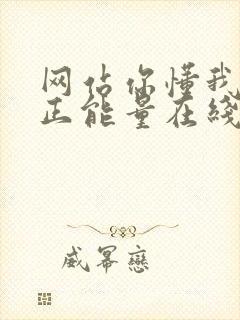 网站你懂我
正能量在线
威幂恋